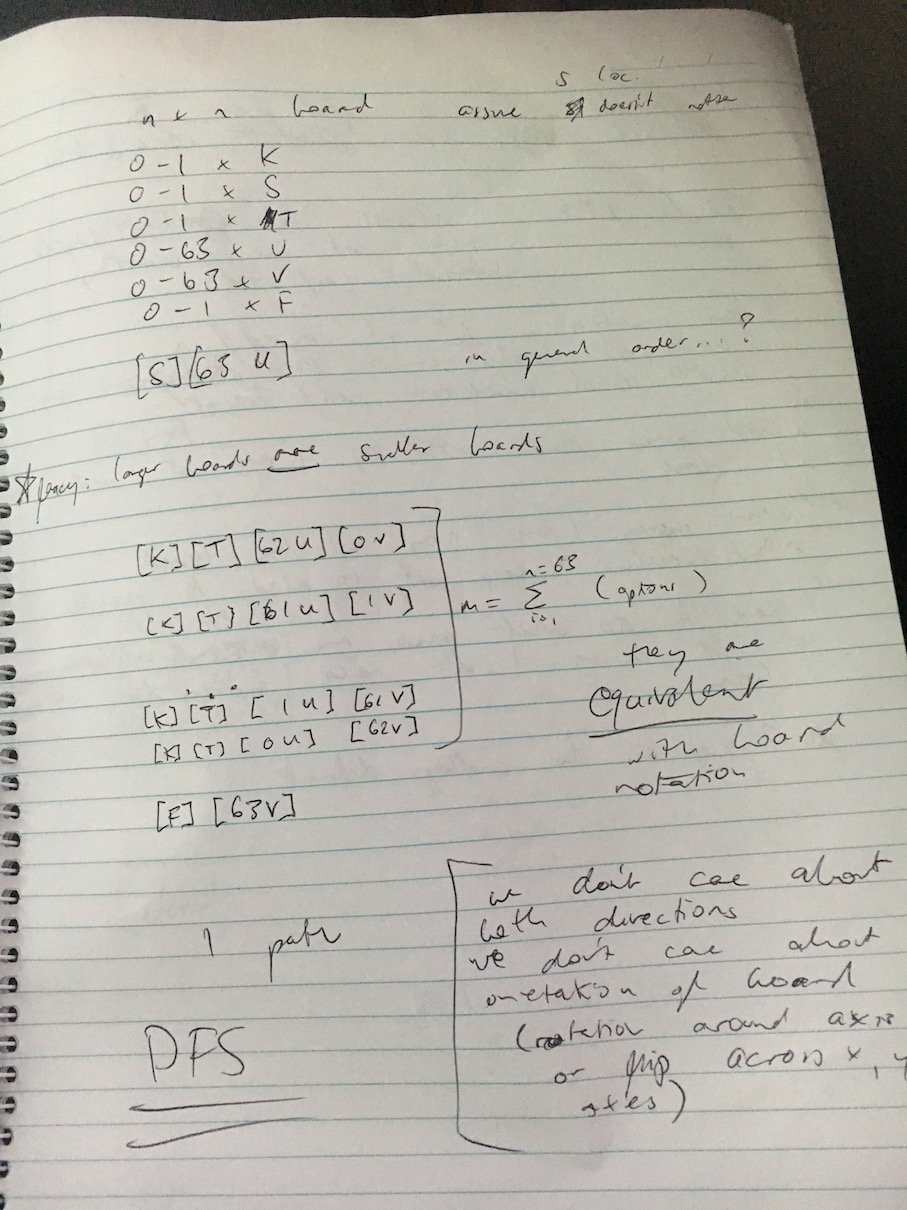 S loc.
n x n board assume doesn't matter
0-1 x K
0-1 x S
0-1 x T
0-63 x U
0-63 x V
0-1 x F
[S][63 U] in general order...?
larger boards are smaller boards
[K][T][62 U][0 V]
[K][T][61 U][1 V]
m = n=63 Σ i=1 (options)
they are
[K][T][1 U][61 V] equivalent
[K][T][0 U][62 V] with board
notation
[F][63V]
we don't care about
both directions
1 path
we don't care about
orientation of board
DFS
(rotation around axis
or flip across x, y
axes)